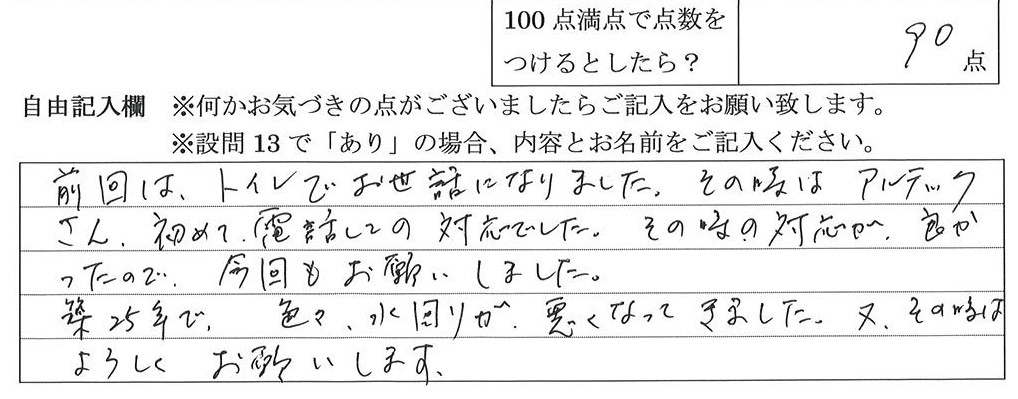 100点満点で点数を
つけるとしたら？
90 点
自由記入欄 ※何かお気づきの点がございましたらご記入をお願い致します。
※設問13で「あり」の場合、内容とお名前をご記入ください。
前回は、トイレでお世話になりました。その時は アルテック
さん、初めて、電話しての対応でした。その時の対応が、良か
ったので、今回もお願いしました。
築25年で、色々、水回りが、悪くなってきました。又、その時は
よろしくお願いします、